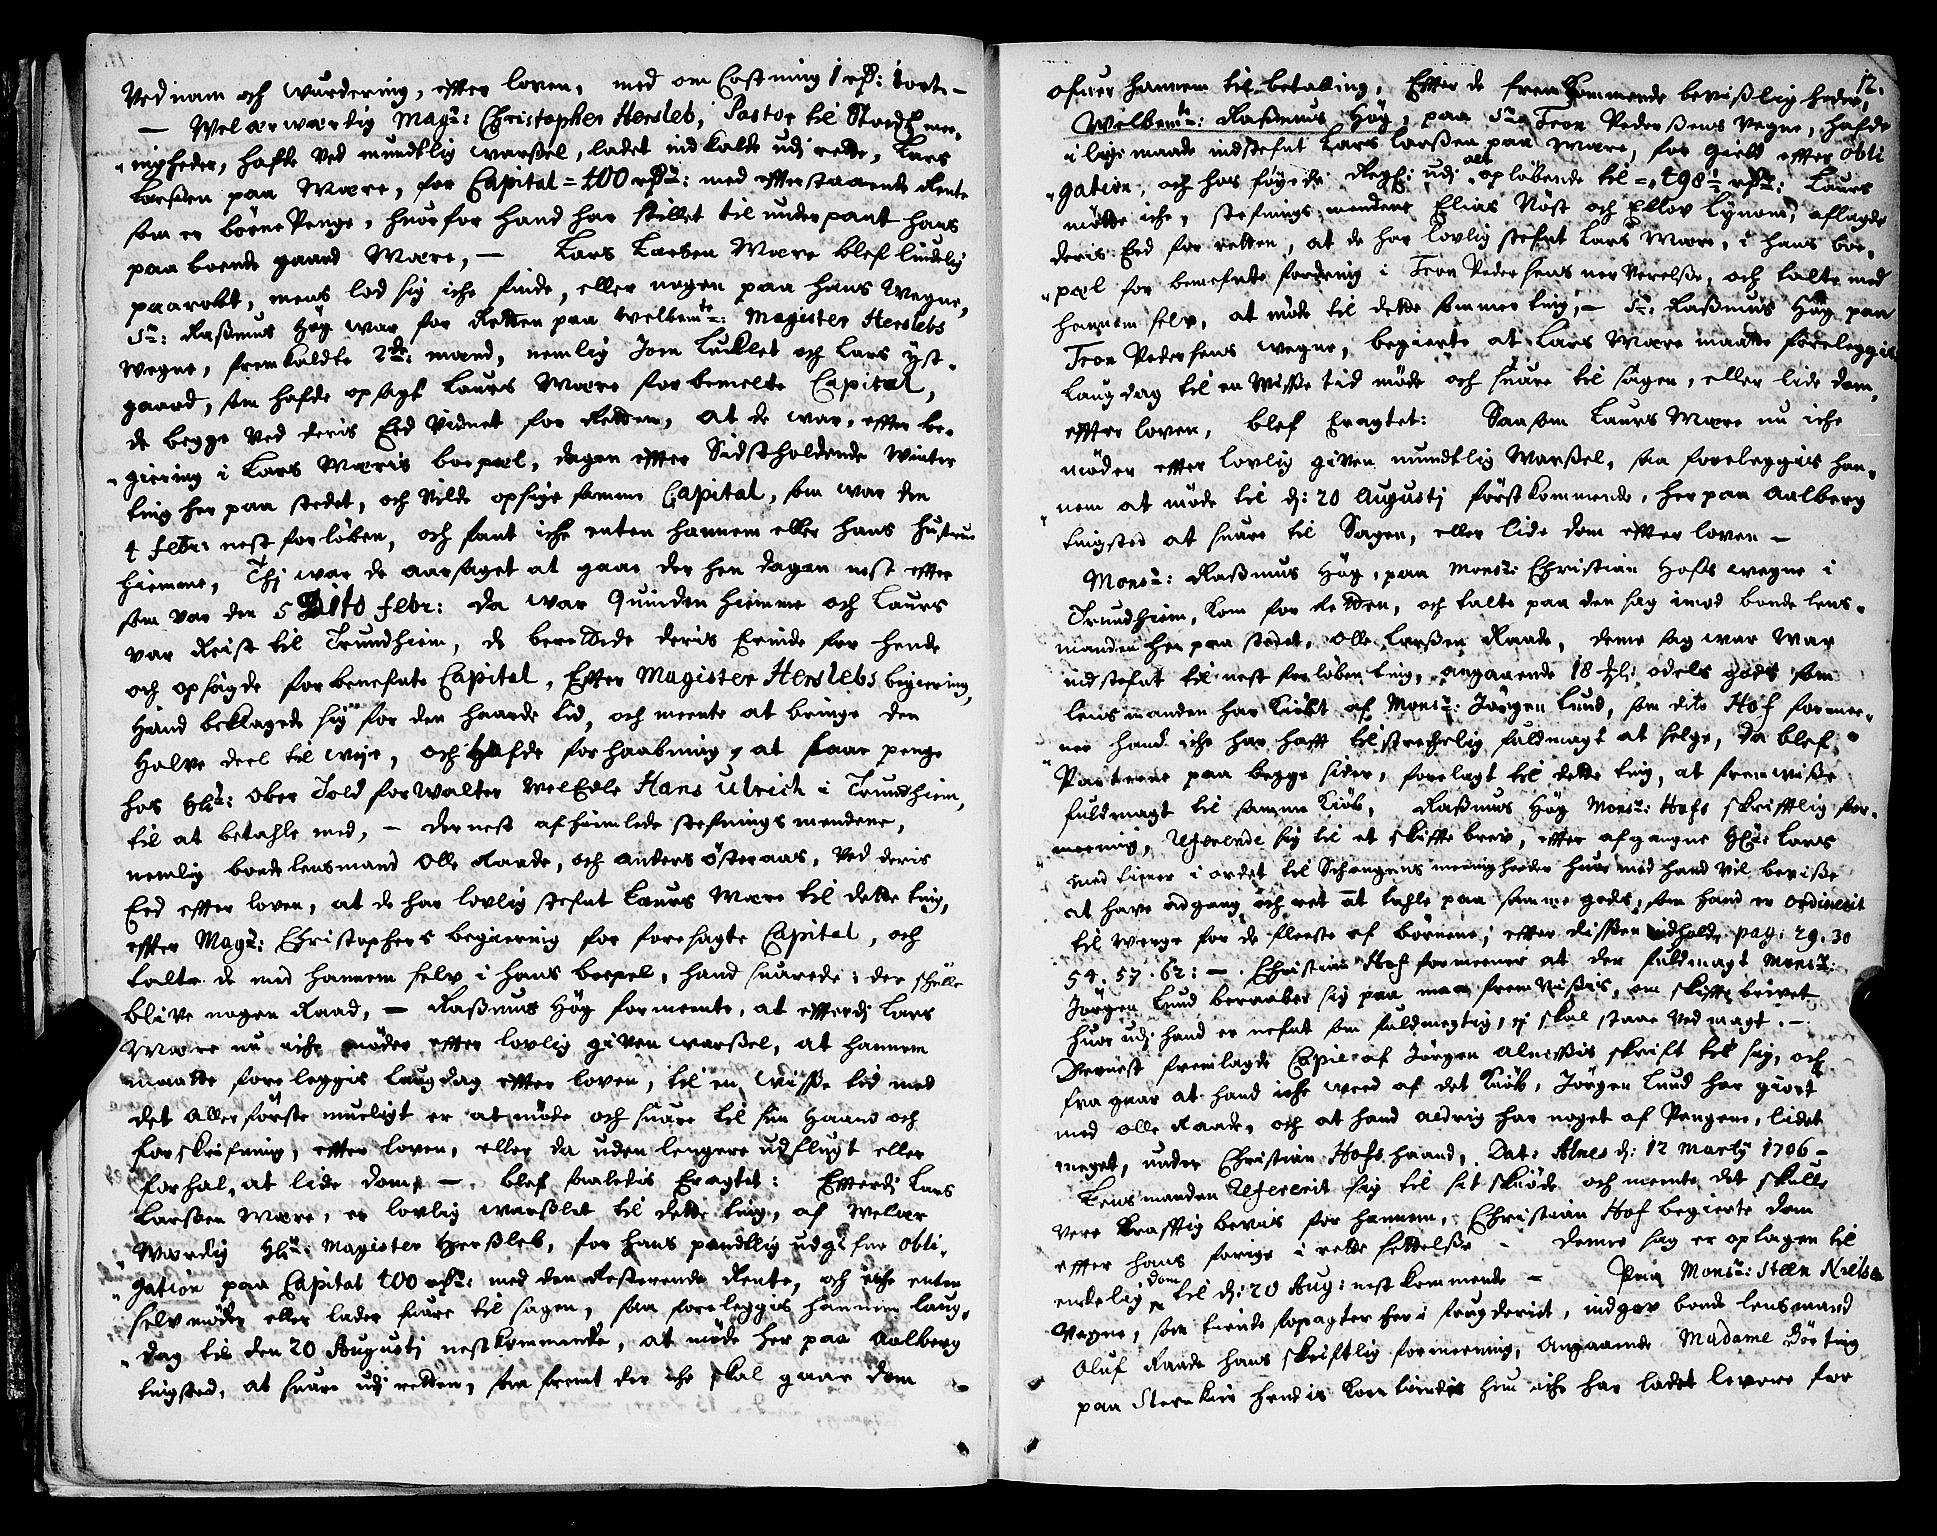 Ved nam och wurdering, efter loven, med om Costning 1 rd: 1 ort -
- Welærwærdig Magr: Christopher Hersleb, Pastor til Stod me-
nigheder, hafde ved mundtlig warßel, ladet indkalde udj rette, Lars
Larßen paa Wære, for Capital = 400 rdr: med efterstaaende Rente
som er børne Penge, huorfor hand har stillet til underpant hans
paaboende gaard Wære, - Lars Larßen Wære blef lindelig
paaraabt, mens lod sig iche finde, eller nogen paa hans wegne,
Sr: Raßmus Høg war for Retten paa welbemte: Magister Herslebs
wegne, fremkaldte 2de: mænd, nemlig Joen Lucklet och Lars Øst-
gaard, som hafde opsagt Laurs Wære forbemelte Capital,
de begge ved deris Eed vidnet for Retten, at de war, efter be-
giering i Lars Wæris boepæl, dagen efter Sidstholdende winter
ting her paa stedet, och vilde opsige samme Capital, som war den
4 febr: nest forløben, och fant iche enten hannem eller hans hustrue
hiemme, Thj war de aarsaget at gaae der hen dagen nest efter
som var den 5 Dito febr: da war Quinden hiemme och Laurs
var Reist til Trundhiem, de berettede deris Erinde for hende
och opsagde forbenefnte Capital, Efter Magister Herslebs begiering,
Hand beklagede sig for den haarde tid, och meente at bringe den
Halve deel til weje, och hafde forhaabning, at faae penge
hos Hr: Ober Told forwalter WelEdle Hans Ulrich i Trundhiem,
til at betahle med, - dernest afhiemlede stefnings mendene,
nemlig bonde lensmand Olle Raade, och Anders Østeraas, ved deris
Eed efter loven, at de har lovlig stefnt Laurs Wære til dette ting,
efter Magr: Christophers begiering for foresagte Capital, och
talte de med hannem selv i hans boepel, hand suarede: der schulle
blive nogen Raad, - Raßmus Høg formeente, at efterdj Lars
Wære nu iche møder efter lovlig given warßel, at hannem
maatte foreleggis laugdag efter loven, til en wisse tid med
det allerførste mueligt er at møde och suare til sin Haand och
forskrifning, efter loven, eller da uden lengere udflugt eller
forhal, at lide dom, - blef saaledis Eragtet: Efterdj Lars
Larßen Wære, er lovlig warßlet til dette ting, af Welær
Wærdig Hr: Magister Herßleb, for hans pendtlig udgifne obli-
gation paa Capital 400 rdr: med den Resterende Rente, och iche enten
selv møder eller lader suare til sagen, saa foreleggis hannem laug-
dag til den 20 Augustj nestkommende, at møde her paa Aalberg
tingsted, at suare udj retten, saa fremt der iche skal gaae dom
12.
ofuer hannem til betalling, Efter de fremkommende bevißligheder,
Welbemte: Raßmus Høg, paa Sr Tron Pederßens vegne, hafde
i lige maade indstefnt Lars Larßen paa Wære, for gield efter obli
gation, och hos føyede Regs: udj alt opløbende til = 498½ rdr: Laurs
møtte iche, stefnings mendene Elias Nøst och Ellov Lynom, aflagde
deris Eed for retten, at de har lovlig stefnt Lars Wære, i hans boe-
pæl for benefnte fordring i Tron Pedersens nerverelße, och talte med
hannem selv, at møde til dette Sommer ting, - Sr: Raßmus Høg paa
Tron Pedersens wegne, begierte at Lars Wære maatte foreleggis
Laugdag til en wisse tid møde och suare til sagen, eller lide dom
efter loven, blef Eragtet: Saasom Laurs Wære nu iche
møder efter lovlig given mundtlig Warßel, saa foreleggis han-
nem at møde til d: 20 Augustj førstkommende, her paa Aalberg
tingsted at suare til Sagen, eller lide dom efter loven -
Monsr: Raßmus Høg, paa Monsr: Christian Hofs wegne i
Trundhiem, kom for Retten, och talte paa den sag imod bonde lens-
manden her paa stedet, Olle Larßen Raade, denne sag war War
indstefnt til nest forløben ting, angaaende 18 odels gods som
lensmanden har Kiøbt af Monsr: Jørgen Lund, som dito Hof formee-
ner hand iche har haft tilstrechelig fuldmagt at selge, Da blef
Parterne paa begge sider, forelagt til dette ting, at fremwiße
fuldmagt til samme Kiøb, Raßmus Høg Monsr: Hofs skriftlig for-
meening, Refererede sig til et skifte brev, efter afgangne Hr: Lars
med tiener i ordet til Schongens menigheeder huor med hand vil beviße
at have adgang och ret at tahle paa samme gods, som hand er ordinerit
til werge for de fleeste af børnene, efter dißen indhold, pag: 29. 30
54. 57. 62: - Christian Hof formeener at den fuldmagt Monsr:
Jørgen Lund beraaber sig paa maa fremvißis, om skifte brevet
huor udj hand er nefnt som fuldmegtig, ej skal staae ved magt. -
Dernest fremlagde Copie af Jørgen Alnessis skrift til sig, och
fra gaar at hand iche weed af det Kiøb, Jørgen Lund har giort
med Olle Raade, och at hand aldrig har noget af Pengene, lidet
meget, under Christian Hofs haand, Dat: Alnes d: 12 Martij 1706 -
Lensmanden Refererit sig til sit skiøde och meente det skulle
vere krafftig beviis for hannem, Christian Hof begierte dom
efter hans forige i rette settelße - denne sag er optagen til
endelig dom til d: 20 Aug: nestkommende - Paa Monsr: Steen Nielsen
vegne, som tiende forpagter her i fougderiet, indgav bonde lensmand
Oluf Raade hans skriftlig formeening, Angaaende Madame Dorting
paa Steenkier hendis Korntiende hun iche har ladet levere for